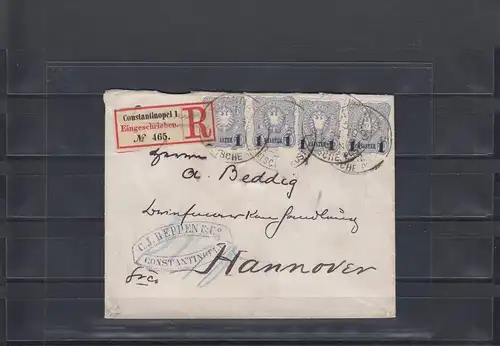 Constantinopel 1.
Eingeschrieben.
№ 465.
R
1 PIASTER 1
1 PIASTER 1
1 PIASTER 1
1 PIASTER 1
DEUTSCHE POST
Herrn
A. Beddig
Hannover
C. J. HEDDEN & Co
CONSTANTINOPEL
frco